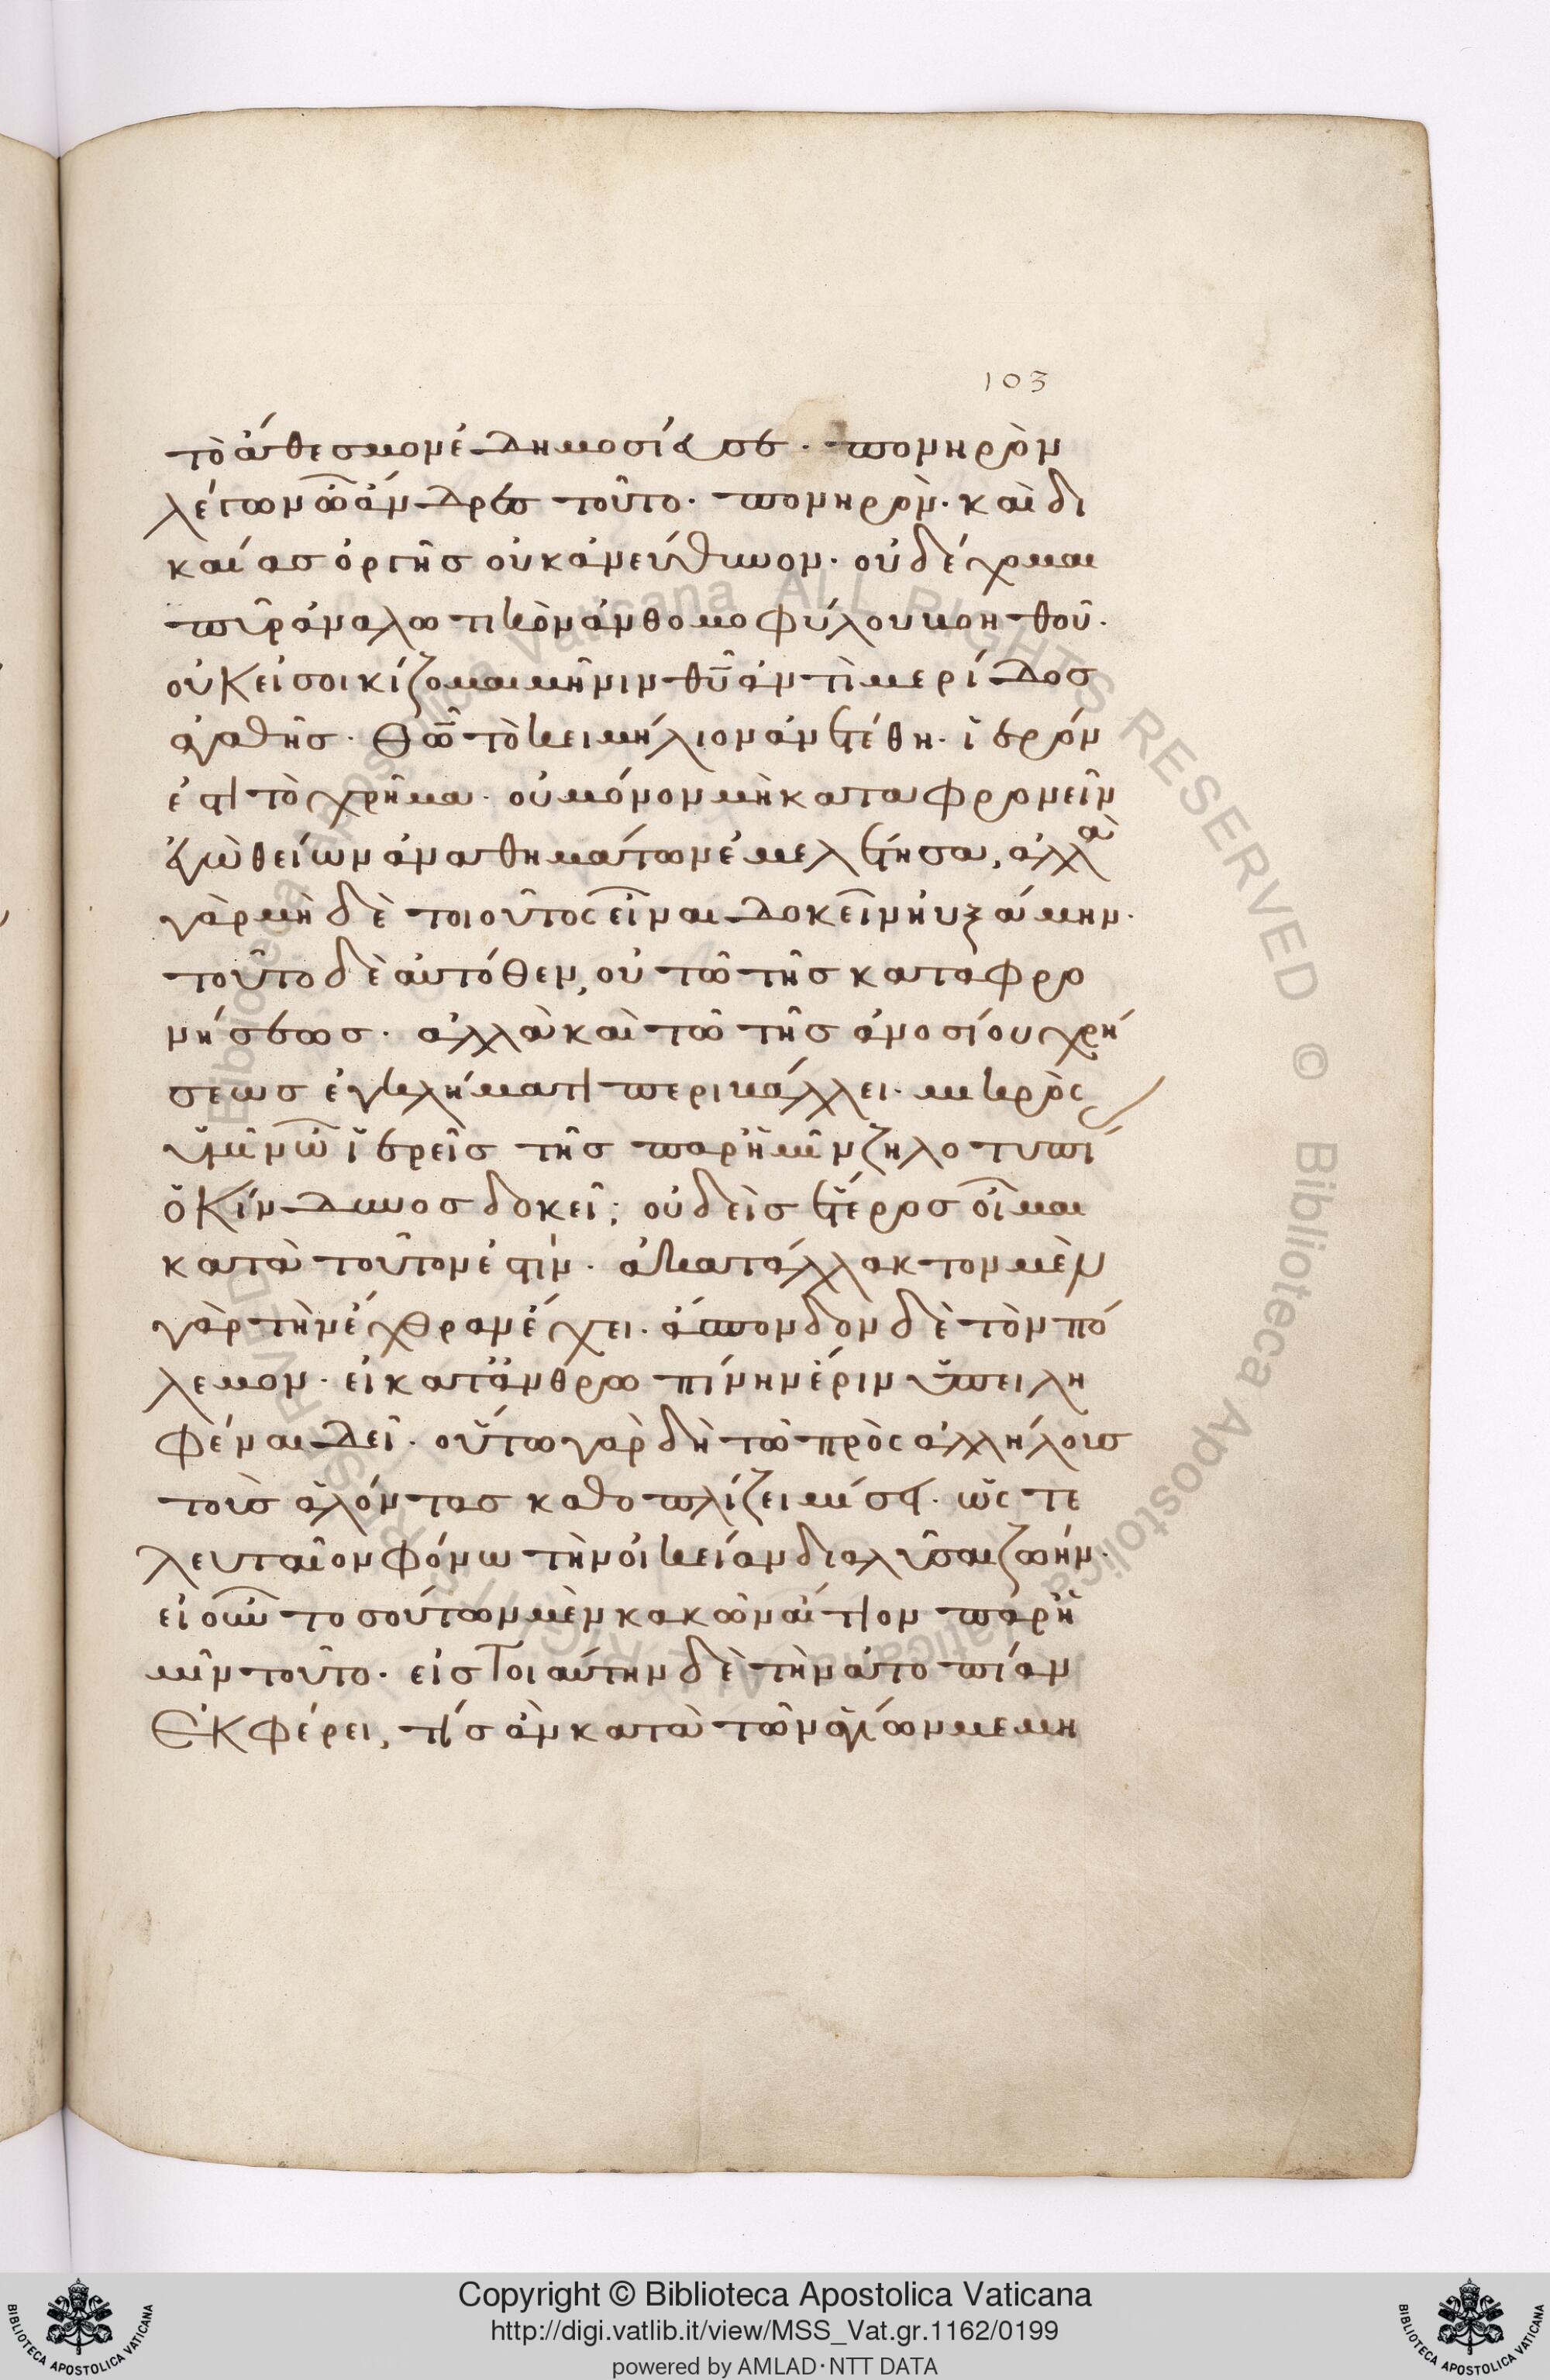 103
τὸ ἄθεσμον ἐδημοσίευσε· πονηρὸν
λέγων ὦ ἄνδρες τοῦτο· πονηρὸν· καὶ δι
καίας ὀργῆς οὐκ ἀνεύθυνον· οὐ δέχομαι
πῦρ ἀναλωτικὸν ἀνθομοφύλου βοηθοῦ·
οὐκ εἰσοικίζομαι μῆνιν θῦ ἀντὶ μερίδος
ἀγαθῆς· Θῶ τὸ κειμήλιον ἀνετέθη· ἱερόν
ἐστι τὸ χρῆμα· οὐ μόνον μὴ καταφρονεῖν
ἐγὼ θείων ἀναθημάτων ἐμελέτησα, ἀλλὰ
γὰρ μὴ δὲ τοιοῦτος εἶναι δοκεῖν ηὐξάμην·
τοῦτο δὲ αὐτόθεν, οὐ τῶ τῆς καταφρο
νήσεως· ἀλλὰ καὶ τῶ τῆς ἀνοσίου χρή
σεως ἐγκλήματι περιβάλλει· μικρὸς
ὑμῖν ὦ ἱερεῖς τῆς παρἡμῖν ζηλοτυπί
ὁ κίνδυνος δοκεῖ; οὐδεὶς ἕτερος οἶμαι
κατὰ τοῦτον ἐστίν· ἀκατάλλακτον μὲν
γὰρ τὴν ἔχθραν ἔχει· ἄσπονδον δὲ τὸν πό
λεμον· εἰ κατἀνθρωπίνην ἔριν ὑπειλη
φέναι δεῖ· οὕτω γὰρ δὴ τῶ πρὸς ἀλλήλους
τοὺς ἁλόντας καθοπλίζει μίσει· ὡς τε
λευταῖον φόνω τὴν οἰκείαν διαλῦσαι ζωήν·
εἰ οὖν τοσούτων μὲν κακῶν αἴτιον παρἡ
μῖν τοῦτο· εἰς τοιαύτην δὲ τὴν ἀτοπίαν
ἐκφέρει, τίς ἂν κατὰ τῶν ἁγίων μεμη
Copyright © Biblioteca Apostolica Vaticana
http://digi.vatlib.it/view/MSS_Vat.gr.1162/0199
powered by AMLAD·NTT DATA